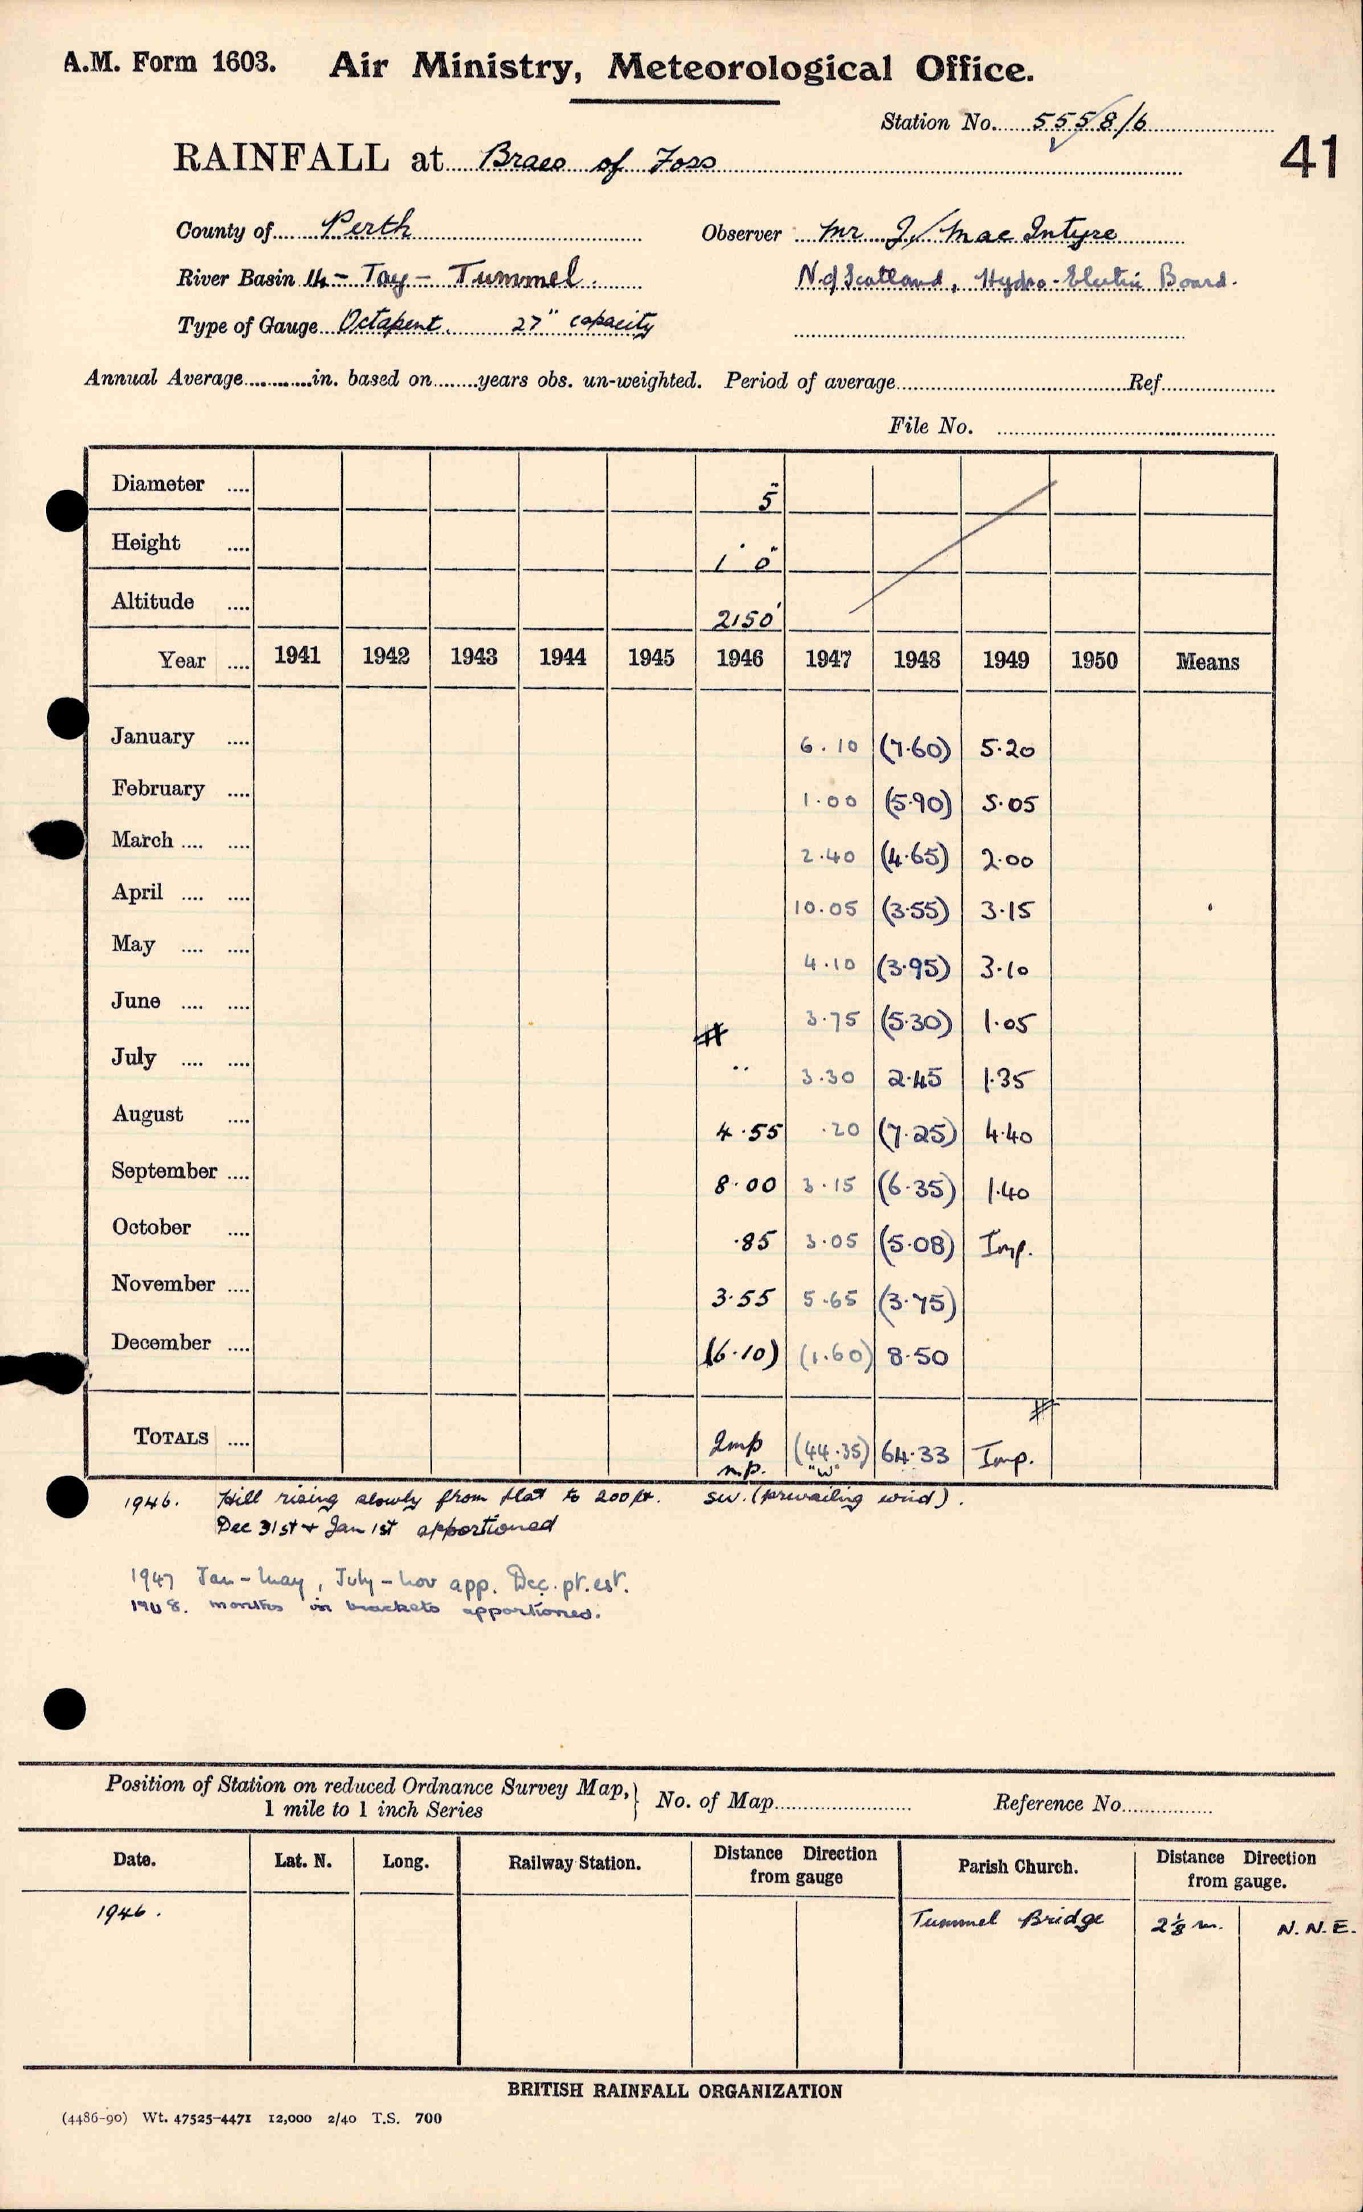 A.M. Form 1603. Air Ministry, Meteorological Office.
Station No. 5558/6
41
RAINFALL at Braes of Foss
County of Perth Observer Mr J. MacIntyre
River Basin 14 - Tay - Tummel. N. of Scotland, Hydro-Electric Board.
Type of Gauge Octapent. 27" capacity
Annual Average............in. based on........years obs. un-weighted. Period of average............Ref............
File No. ............
Diameter .... 5"
Height .... 1' 0"
Altitude .... 2150'
Year .... 1941 1942 1943 1944 1945 1946 1947 1948 1949 1950 Means
January .... 6.10 (7.60) 5.20
February .... 1.00 (5.90) 5.05
March .... .... 2.40 (4.65) 2.00
April .... .... 10.05 (3.55) 3.15
May .... .... 4.10 (3.95) 3.10
June .... .... 3.75 (5.30) 1.05
July .... .... .. 3.30 2.45 1.35
August .... 4.55 .20 (7.25) 4.40
September .... 8.00 3.15 (6.35) 1.40
October .... .85 3.05 (5.08) Imp.
November .... 3.55 5.65 (3.75)
December .... (6.10) (1.60) 8.50
TOTALS .... Imp (44.35) 64.33 Imp.
n.p. "W"
1946. Hill rising slowly from flat to 200ft. SW. (prevailing wind).
Dec 31st + Jan 1st apportioned
1947 Jan - May, July - Nov app. Dec. pt. est.
1948. months in brackets apportioned.
Position of Station on reduced Ordnance Survey Map,} No. of Map............ Reference No............
1 mile to 1 inch Series
Date. Lat. N. Long. Railway Station. Distance Direction from gauge Parish Church. Distance Direction from gauge.
1946. Tummel Bridge 2⅛ m. N.N.E.
BRITISH RAINFALL ORGANIZATION
(4486-90) Wt. 47525-4471 12,000 2/40 T.S. 700